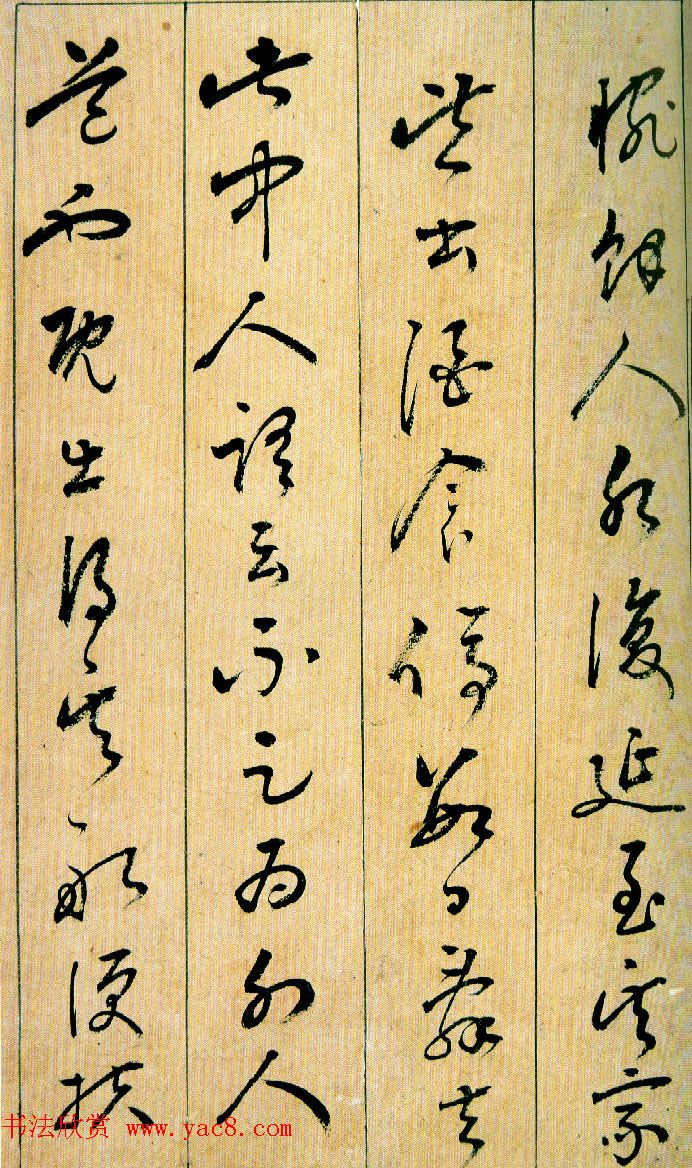 惋餘人各復延至其家
皆出酒食停數日辭去
此中人語云不足為外人
道也既出得其船便扶
书法欣赏 www.yac8.com